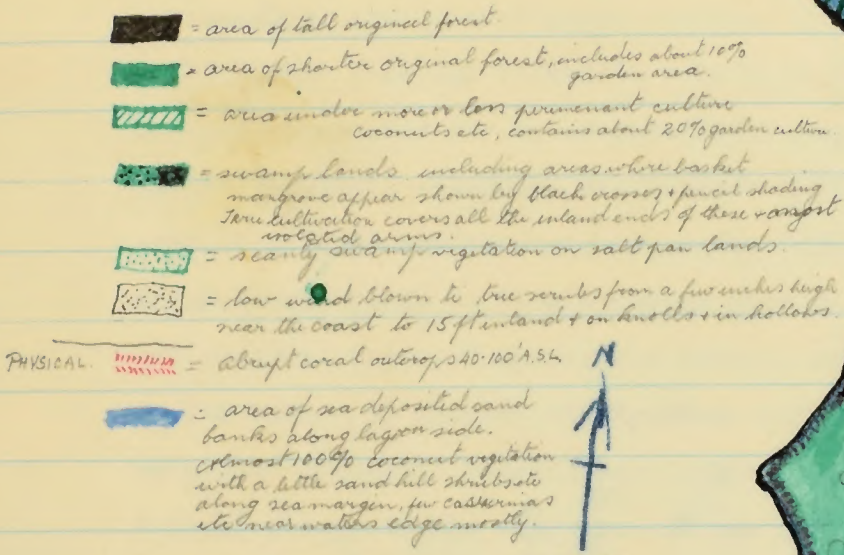 = area of tall original forest.
= area of shorter original forest, includes about 10%
garden area.
= area under more or less permenant culture
coconuts etc, contains about 20% garden culture.
= swamp lands including areas where basket
mangrove appear shown by black crosses + pencil shading
cultivation covers all the inland ends of these + most
isolated arms.
= scanty swamp vegetation on salt pan lands.
= low wind blown ti tree scrubs from a few inches high
near the coast to 15 ft inland + on knolls + in hollows.
PHYSICAL. = abrupt coral outcrops 40-100' A.S.L.
N
= area of sea deposited sand
banks along lagoon side.
Almost 100% coconut vegitation
with a little sand hill shrubs etc
along sea margin, few casurinas
etc near waters edge mostly.